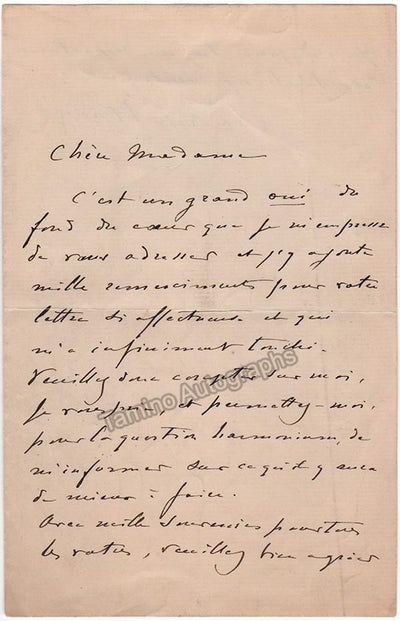 Chère Madame
C'est un grand oui du
fond du cœur que je m'empresse
de vous adresser et j'y ajoute
mille remerciements pour votre
lettre si affectueuse et qui
m'a infiniment touché.
Veuillez donc compter sur moi,
je vous prie et permettez-moi,
pour la question harmonium, de
m'informer sur ce qu'il y aura
de mieux à faire.
Avec mille souvenirs pour tous
les vôtres, veuillez bien agréer
Tamino Autographs